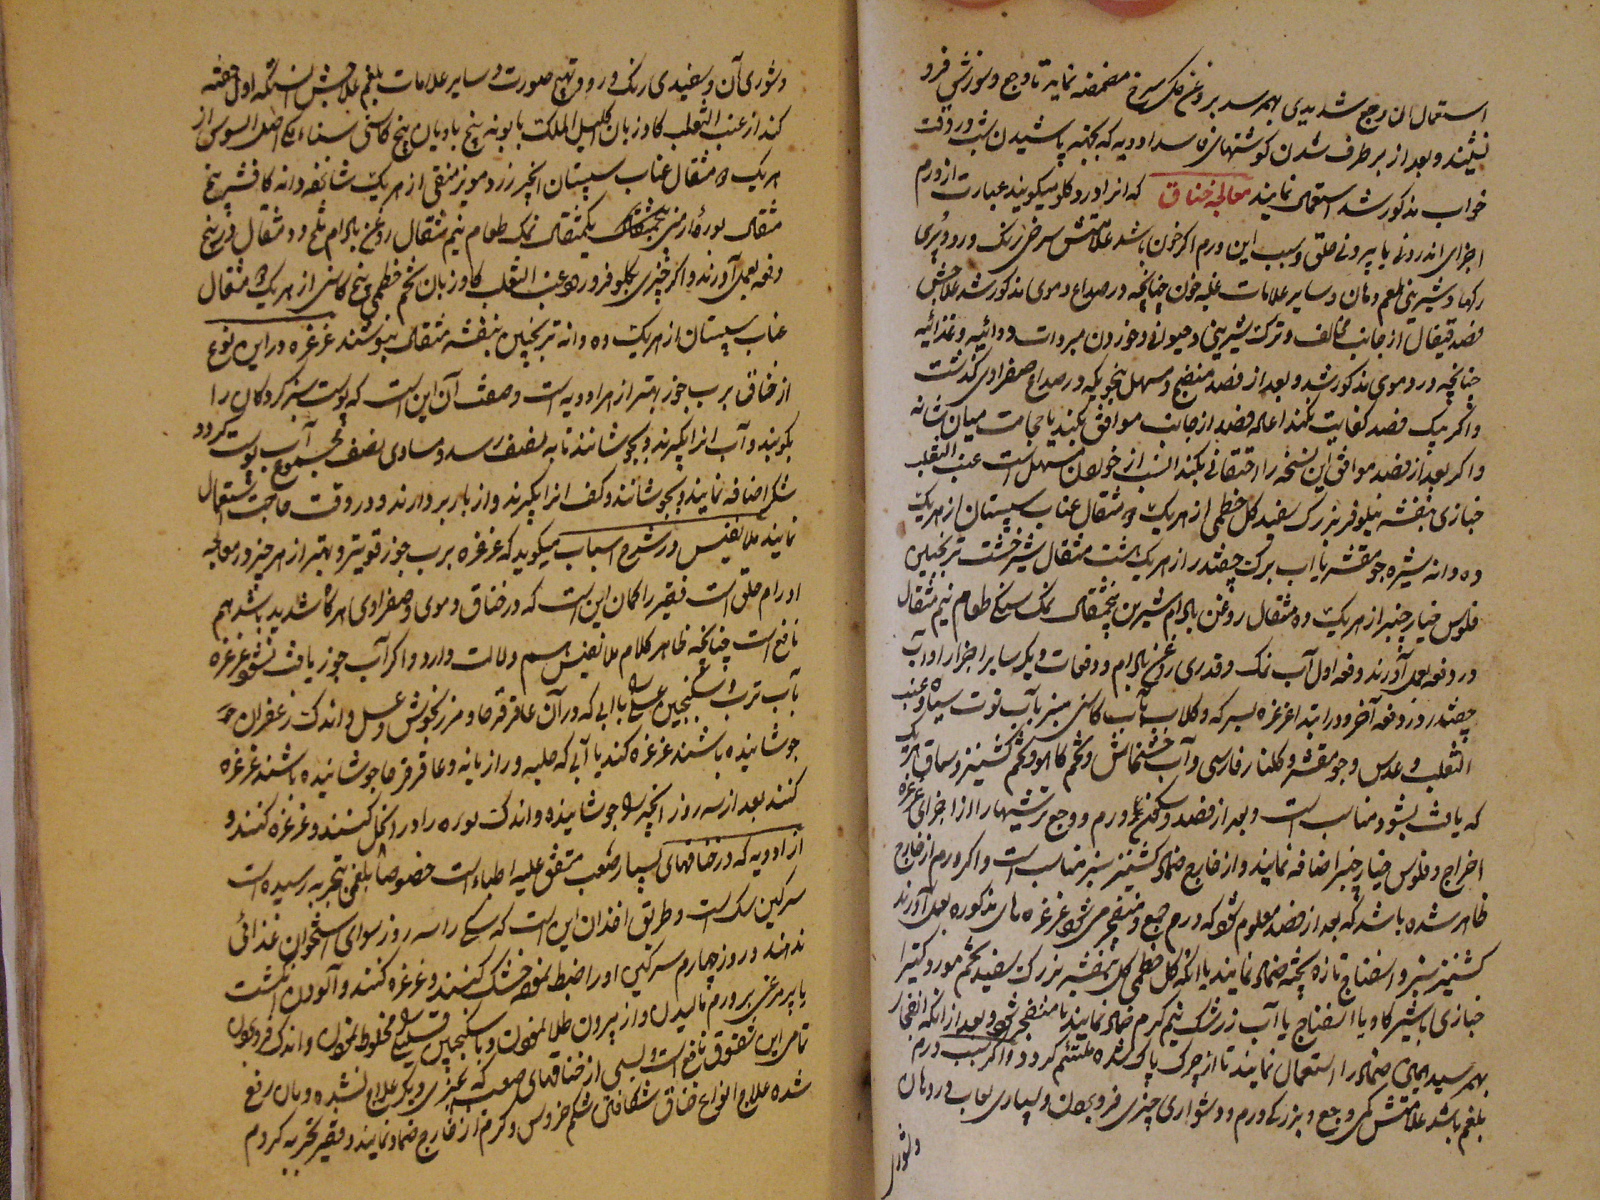 استعمال آن وجع شدیدی بهم رسد بروغن گل سرخ مضمضه نماید تا وجع و سوزش فرو
نشیند و بعد از برطرف شدن گوشتهای فاسد ادویه که بجهة پاشیدن شب در وقت
خواب مذکور شد استعمال نمایند معالجه خناق که انرا درد گلو میگویند عبارت از ورم
اجزای اندرونی یا بیرونی حلق و سبب این ورم اگر خون باشد علامتش سرخی رنگ و رو و پری
رگها و شیرینی طعم دهان و سایر علامات غلبه خون چنانچه در صداع دموی مذکور شد علاجش
فصد قیفال از جانب مخالف و ترک شیرینی و حیوانی و خوردن مبردات دوائیه و غذائیه
چنانچه در دموی مذکور شد و بعد از فصد منضج و مسهل بنحویکه در صداع صفراوی گذشت
و اگر یک فصد کفایت نکند اعاده فصد از جانب موافق بکند یا حجامت میان شانه
و اگر بعد از فصد موافق این نسخه را احتقانی بکند انسب از خوردن مسهل است عنب الثعلب
خبازی بنفشه نیلوفر بزرک سفید گل خطمی از هریک ۵ مثقال عناب سپستان از هریک
ده دانه شیره جو مقشر با اب برک چغندر از هریک هشت مثقال شیر خشت ترنجبین
فلوس خیار چنبر از هریک ده مثقال روغن بادام شیرین پنجمثقال نمک سنگ طعام نیم مثقال
در دو دفعه بعمل آورند دفعه اول آب نمک و قدری روغن بادام و دفعات دیگر سایر اجزا را و آب
چغندر روز دفعه آخر و در ابتدا غرغره بسرکه و گلاب یا آب کاسنی سبز یا آب توت سیاه و عنب
الثعلب و عدس و جو مقشر و گلنار فارسی و آب خشخاش و تخم کاهو و تخم کشنیز و سماق هریک
که یافت بشود مناسب است و بعد از فصد و سکون ورم و وجع ترشیها را از اجزای غرغره
اخراج و فلوس خیار چنبر اضافه نمایند و از خارج ضماد کشنیز سبز مناسب است و اگر ورم از خارج
ظاهر شده باشد که بعد از فصد معلوم شود که ورم جمع و منفجر می شود غرغره های مذکوره بعمل آورند
کشنیز سبز و اسفناج تازه پخته ضماد نمایند یا انکه گل خطمی گل بنفشه بزرک سفید تخم مرو کتیرا
خبازی با شیر گاو یا با اسفناج یا آب زرشک نیم گرم ضماد نمایند تا منفجر شود و بعد از انکه انفجار
بهم رسید بجای ضماد را استعمال نمایند تا از چرک پاک شده ملتئم گردد و اگر سبب ورم
بلغم باشد علامتش کمی وجع و بزرگی ورم و دشواری چیزی فرو بردن و بسیاری لعاب در دهان
وشوری
وشوری آن و سفیدی رنگ و رو و تهبج صورت و سایر علامات بلغم علاجش انستکه اول حقنه
کند از عنب الثعلب گاوزبان اکلیل الملک بابونه بیخ بادیان بیخ کاسنی سناء مکی اصل السوس از
هریک ۵ مثقال عناب سپستان انجیر زرد مویز منقی از هریک شانزده دانه کافشه پنج
مثقال بوره ارمنی یکمثقال نمک طعام نیم مثقال روغن بادام تلخ دو مثقال در پنج
دفعه بعمل آورند و اگر چیزی بگلو فرو رود عنب الثعلب گاوزبان تخم خطمی بیخ کاسنی از هریک ۵ مثقال
عناب سپستان از هریک ده دانه ترنجبین بنفشه مثقال بنوشند غرغره در این نوع
از خناق برب جوز بهتر از هر ادویه است و صفت آن این است که پوست سبز گردکان را
بکوبند و آب انرا بگیرند و بجوشانند تا به نصف رسد و مساوی نصف مجموع آب پوست گردو
شکر اضافه نمایند و بجوشانند و کف انرا بگیرند و از بار بردارند و در وقت حاجت استعمال
نمایند ملا نفیس در شرح اسباب میگوید که غرغره برب جوز قویتر و بهتر از هر چیز در معالجه
اورام حلق است فقیر را گمان این است که در خناق دموی و صفراوی هرگاه شدید باشد هم
نافع است چنانچه ظاهر کلام ملا نفیس هم دلالت دارد و اگر آب جوز یافت نشود غرغره
بآب ترب و سکنجبین عسلی یا بابی که در آن عاقرقرحا و مرزنجوش و عسل و اندک زعفران
جوشانیده باشند غرغره کند یا آبی که حلبه و رازیانه و عاقرقرحا جوشانیده باشند غرغره
کنند بعد از سه روز انچیر جوشانیده و اندک بوره را در ان حل کنند و غرغره کنند و
از ادویه که در خناقهای بسیار صعب متفق علیه اطباء است خصوصا بلغمی بتجربه رسیده است
سرگین سگ است و طریق اخذ ان این است که سگی را سه روز سوای استخوان غذائی
ندهند و روز چهارم سرگین او را ضبط نموده خشک کنند و غرغره کنند و آلودن انگشت
یا پر مرغی بر ورم مالیدن و از بیرون طلا نمودن و با سکنجبین عسلی مخلوط نمودن و اندک فرو بردن
تمامی این شقوق نافع است و بسی از خناقهای صعب که بچیزی دیگر علاج نشده و بان رفع
شده علاج انواع خناق شکافتن شکم خروس و گرم از خارج ضماد نمایند و فقیر تجربه کردم